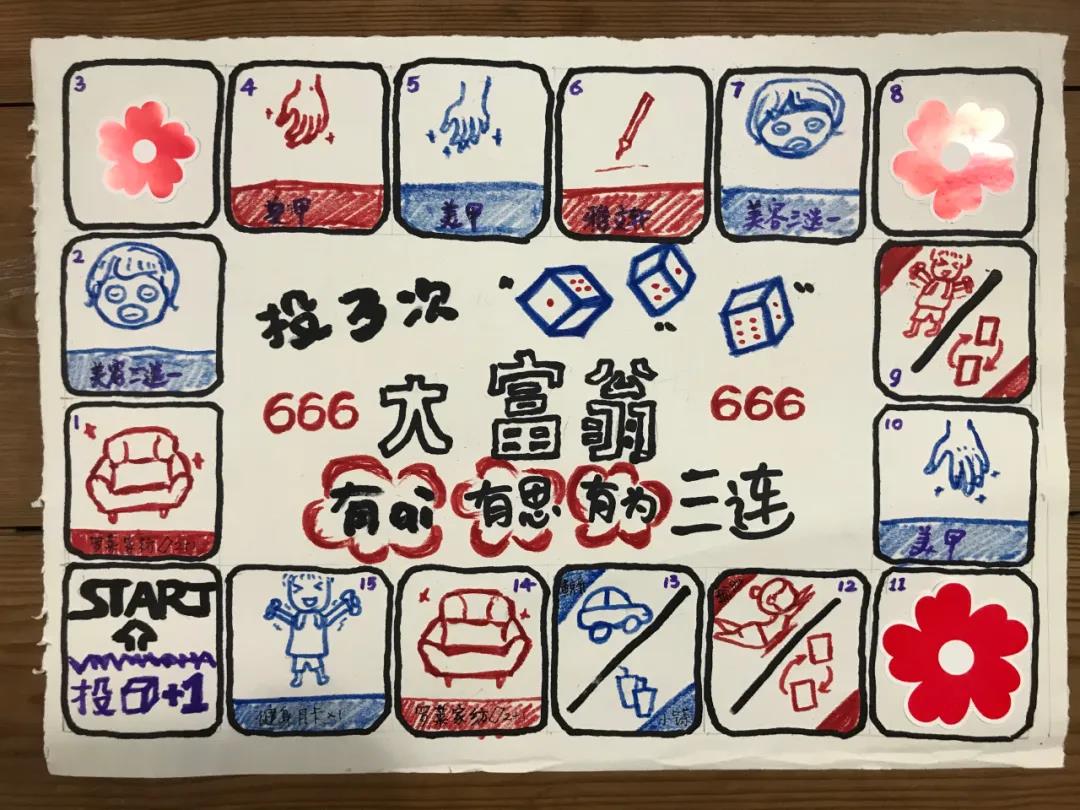 3
4
美甲
5
美甲
6
7
美容二选一
8
2
美容二选一
投3次
9
666
大富翁
666
1
罗莱家纺
有ai
有思
有为
三连
10
美甲
START
投
+1
15
健身月卡x1
14
罗莱家纺
13
12
11